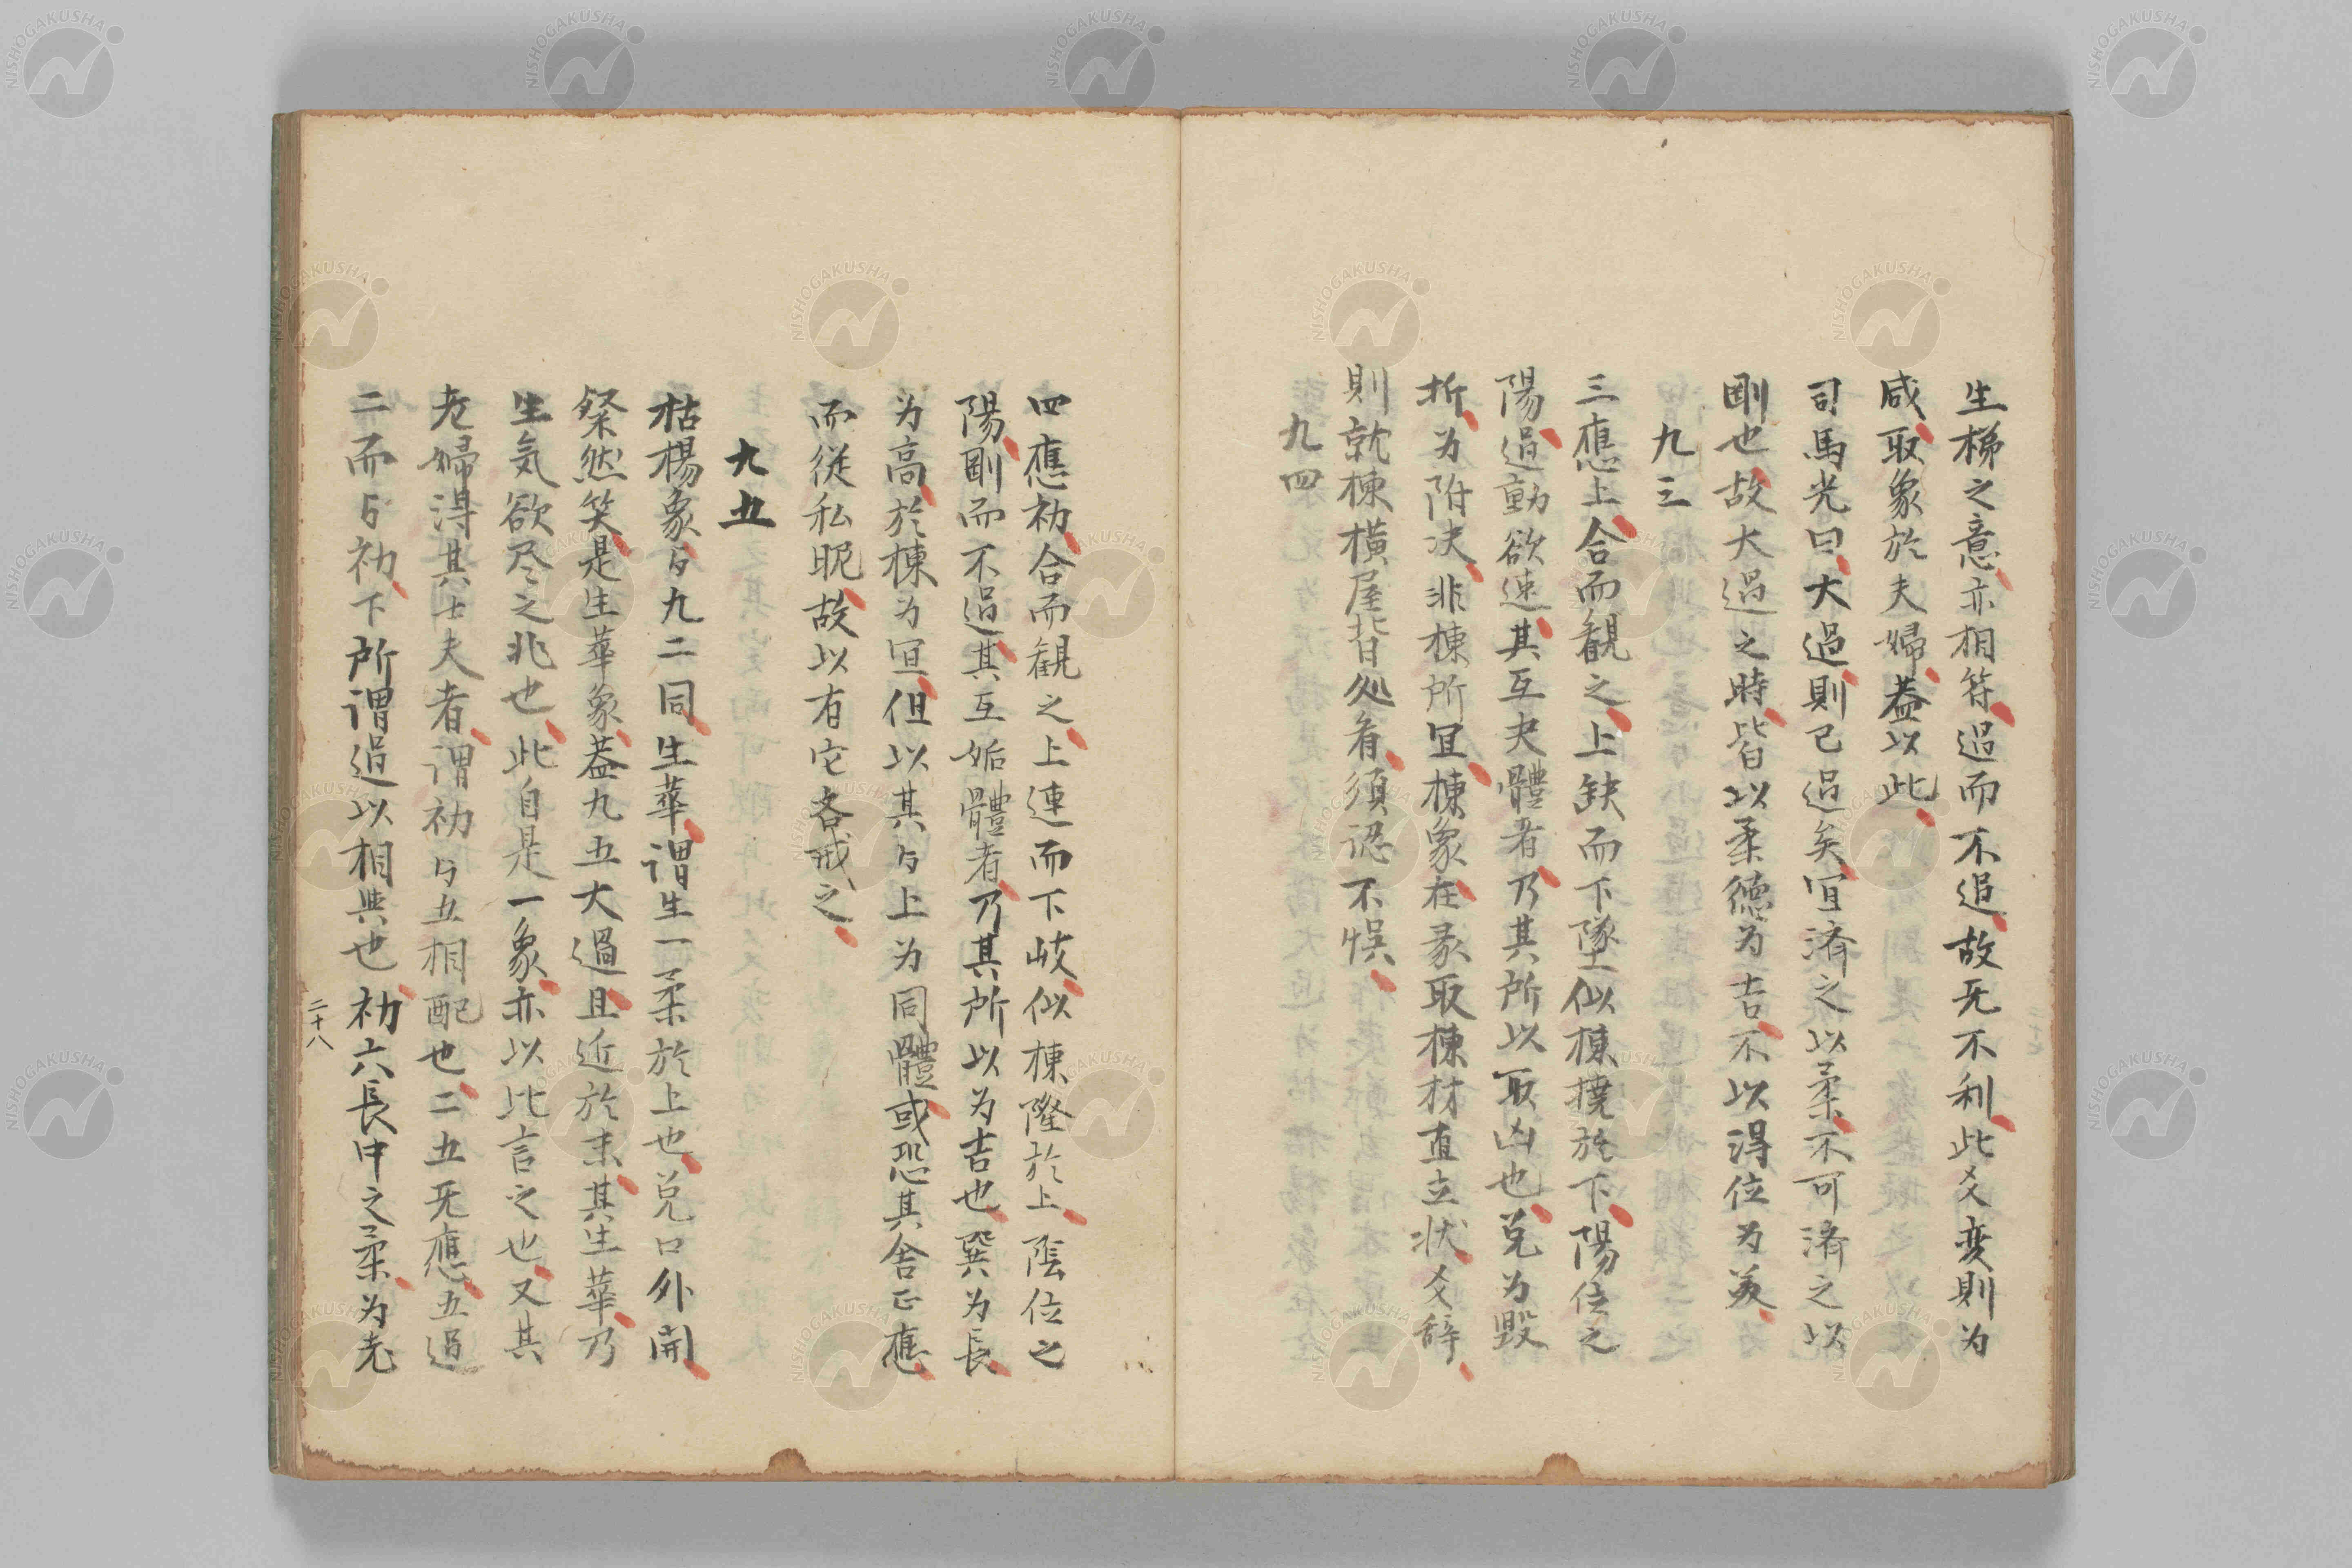 生稊之意亦相符過而不過故无不利此爻変則为
咸取象於夫婦葢以此
司馬光曰大過則已過矣宜済之以柔不可済之以
剛也故大過之時皆以柔德为吉不以得位为美
九三
三應上合而観之上缺而下墜似棟撓於下陽位之
陽過動欲速其互夬體者乃其所以取凶也兑为毀
折为附决非棟所宜棟象在彖取棟材直立状爻辞
則就棟橫屋背処看須認不悞
九四
四應初合而観之上連而下岐似棟隆於上陰位之
陽剛而不過其互姤體者乃其所以为吉也巽为長
为高於棟为宜但以其与上为同體或恐其舍正應
而従私昵故以有它吝戒之
九五
枯楊象与九二同生華謂生一柔於上也兑口外開
粲然笑是生華象葢九五大過且近於末其生華乃
生気欲尽之兆也此自是一象亦以比言之也又其
老婦得其士夫者謂初与五相配也二五无應五過
二而与初下所謂過以相與也初六長中之柔为老
二十八
NISHOGAKUSHA